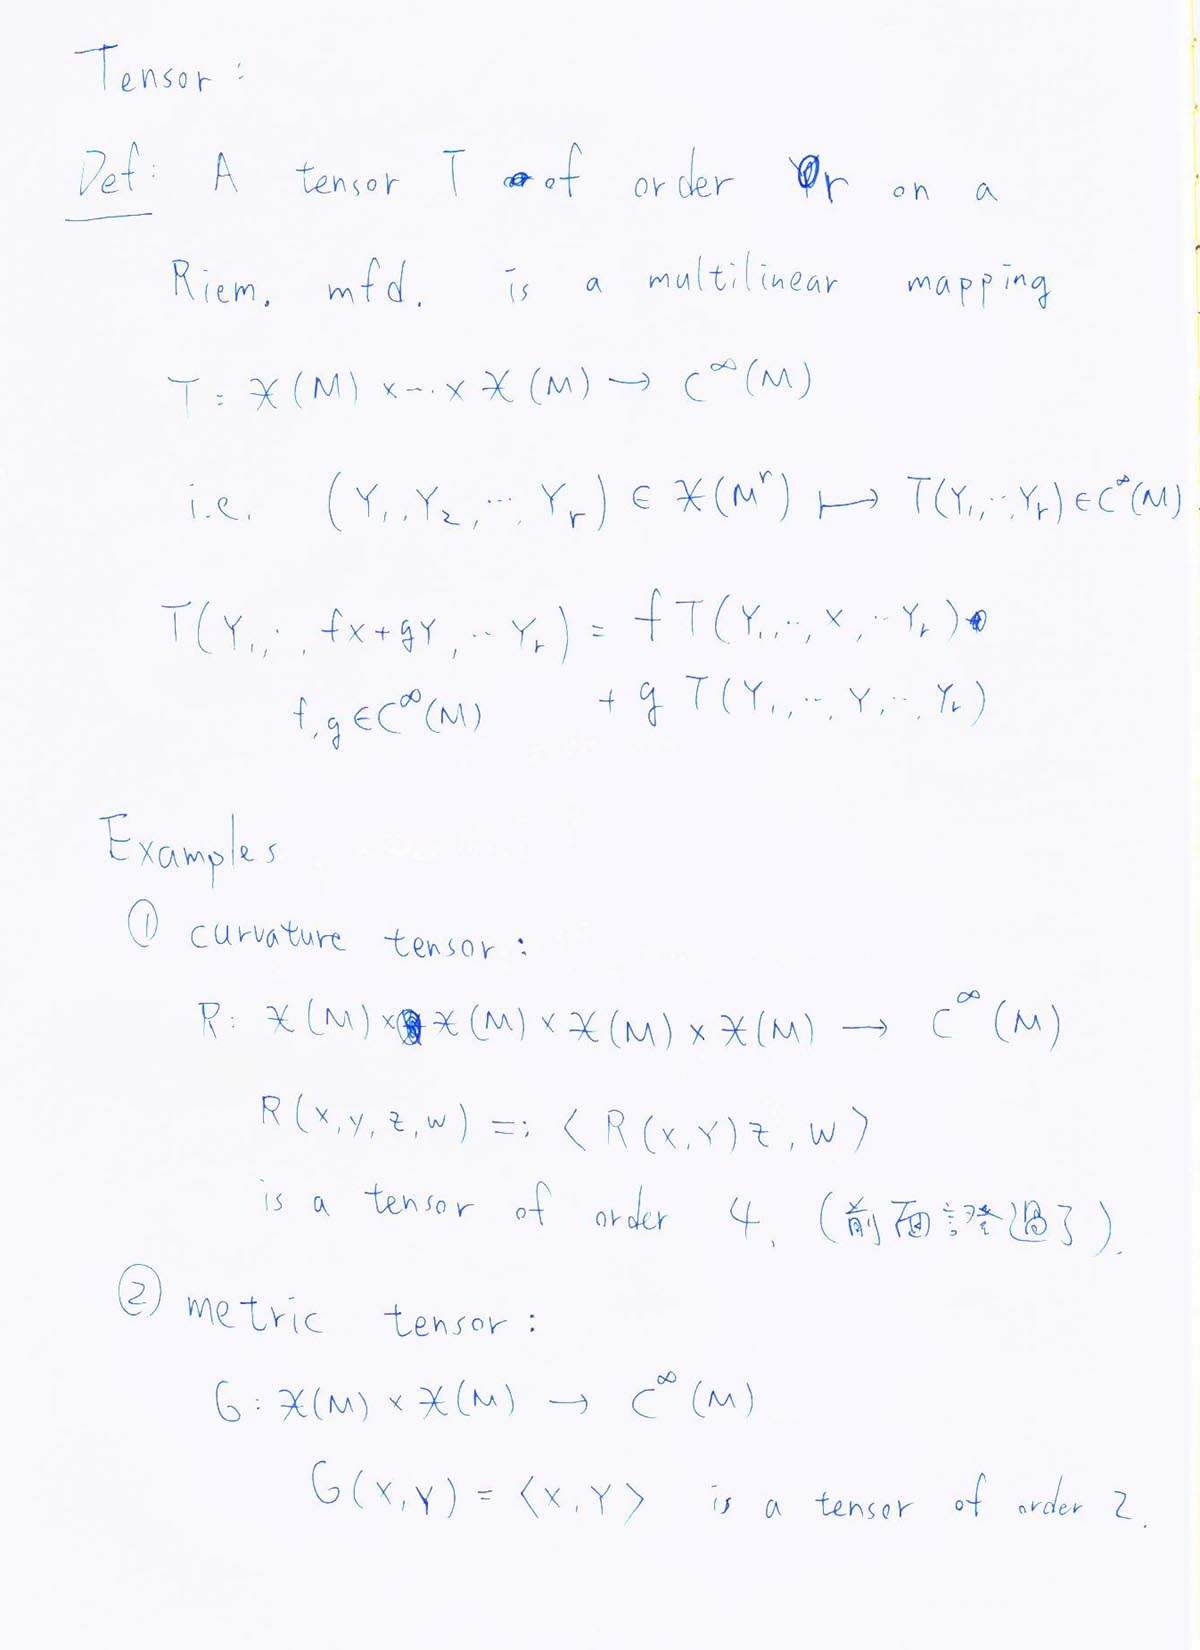 Tensor :
Def: A tensor T of order r on a
Riem. mfd. is a multilinear mapping
T: 𝔛(M) × ... × 𝔛(M) → C^∞(M)
i.e. (Y₁, Y₂, ..., Yᵣ) ∈ 𝔛(Mʳ) ↦ T(Y₁, ..., Yᵣ) ∈ C^∞(M)
T(Y₁, .., fX+gY, .. Yᵣ) = f T(Y₁, .., X, .. Yᵣ)
f, g ∈ C^∞(M) + g T(Y₁, .., Y, .., Yᵣ)
Examples
① curvature tensor :
R: 𝔛(M) × 𝔛(M) × 𝔛(M) × 𝔛(M) → C^∞(M)
R(X, Y, Z, W) =: ⟨R(X, Y)Z, W⟩
is a tensor of order 4. (前面證過了).
② metric tensor :
G: 𝔛(M) × 𝔛(M) → C^∞(M)
G(X, Y) = ⟨X, Y⟩ is a tensor of order 2.